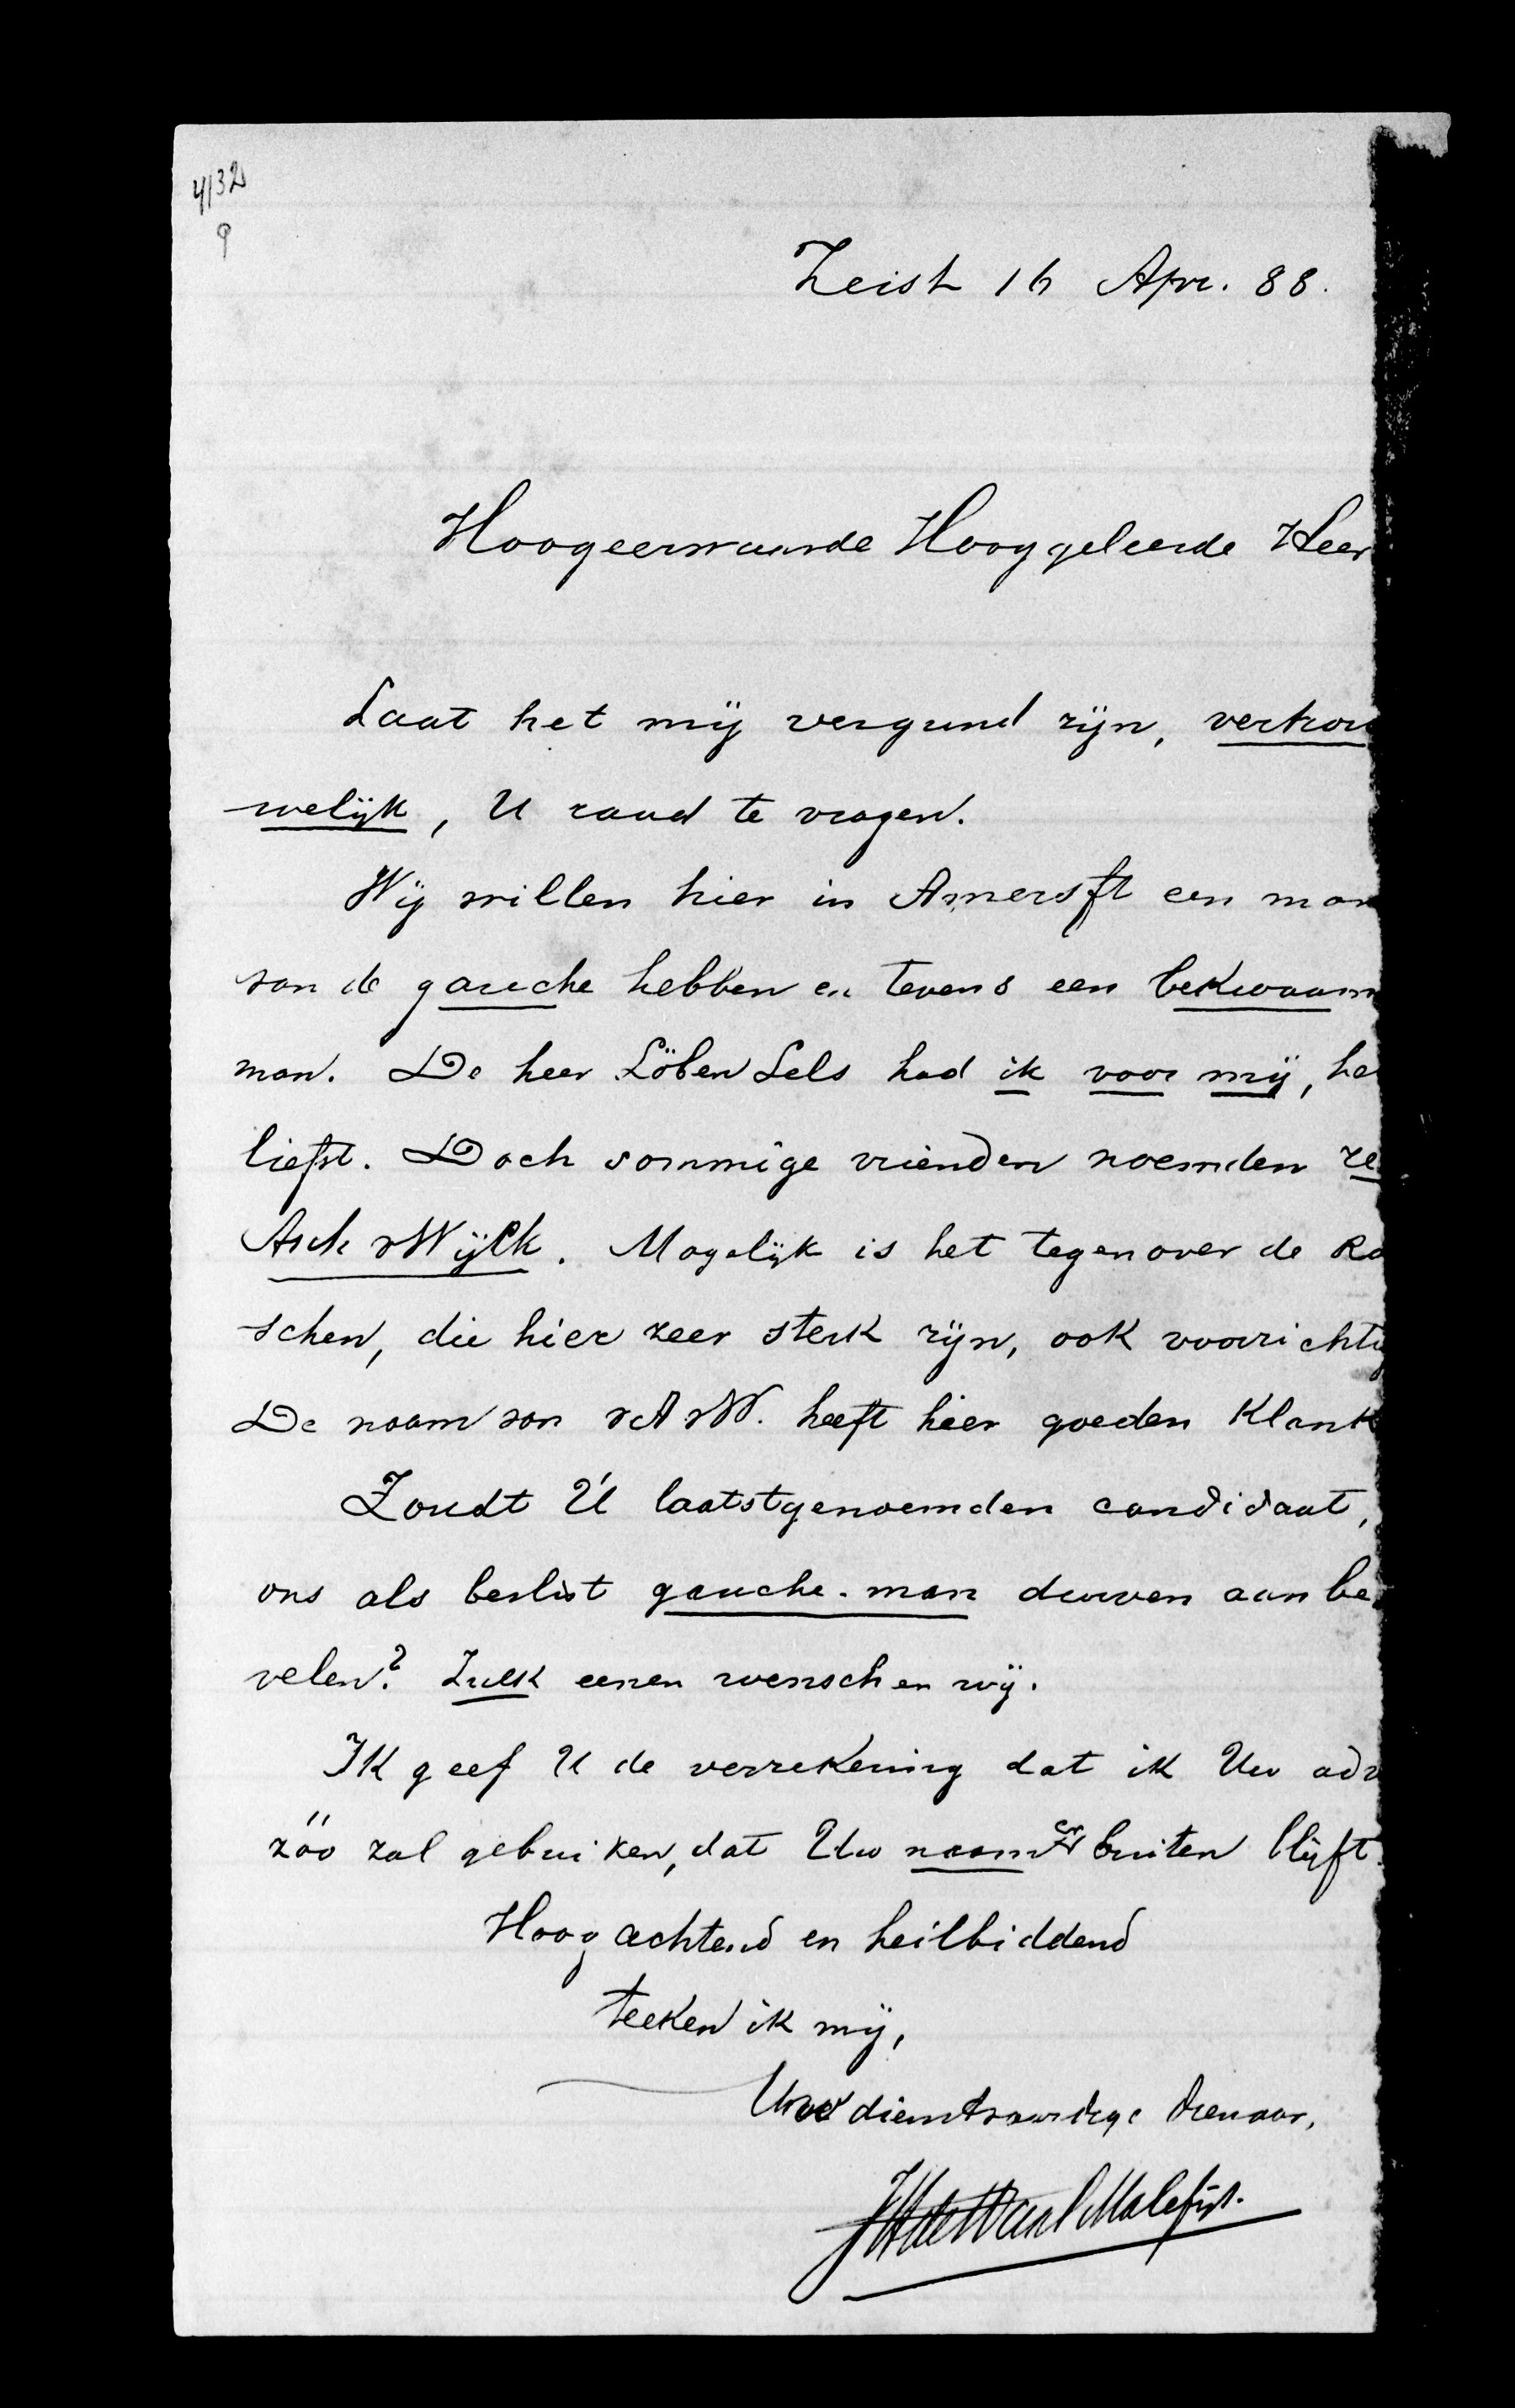 4132
9
Zeist 16 Apr. 88.
Hoogeerwaarde Hooggeleerde Heer
Laat het mij vergund zijn, vertrou
welijk, U raad te vragen.
Wij willen hier in Amersft een man
van de gauche hebben en tevens een bekwaam
man. De heer Löben Sels had ik voor mij, he
liefst. Doch sommige vrienden noemden
Asch v Wijck. Mogelijk is het tegenover de Ro
schen, die hier zeer sterk zijn, ook voorzichtig
De naam van v A v W. heeft hier goeden Klank
Zoudt U laatstgenoemden candidaat,
ons als beslist gauche-man durven aanbe
velen? Zulk eenen wenschen wij.
Ik geef U de verzekering dat ik Uw adv
zóó zal gebruiken, dat Uw naam er buiten blijft.
Hoogachtend en heilbiddend
teeken ik mij,
Uwe dienstvaardige dienaar,
JH de Waal Malefijt.